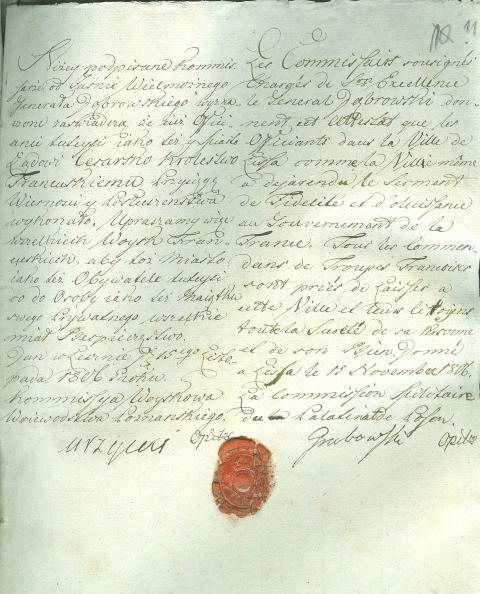 11
Niżey podpisane kommis
sarze od Jaśnie Wielmożnego
Generała Dąbrowskiego wyzna
czone zaświadcza, że tuż Offici
anci tuteysi iako też y Miasto
Rządowi Cesarsko Królestwo
Francuskiemu Przysięgę
Wierności y Posłuszeństwa
wykonało. Upraszamy więc
wszelkich Woysk Fran
cuskich, aby też Miasto
iako też Obywatele tuteysi
co do Osoby iako też Maiątku
swego Prywatnego, wszelkie
miał Bespieczeństwo.
Dan w Lesznie d. 15go Listo
pada 1806 Roku.
Kommissya Woyskowa
Woiewodztwa Poznanskiego.
Les Commissairs sousignés
Chargés de Son Excellence
le General Dąbrowski don-
nent et attestat que les
Officiants dans la Ville de
Lissa comme la Ville même
a déja rendu le serment
de Fidelité et d'obeisence
au Gouvernement de la
France. Tous les commen
dans de Trouppes Francoises
sont priés de laisser a
cette Ville et leurs Citoyens
toute la Sureté de sa Personne
et de son Bien. Donné
a Lissa le 15 Novembre 1806.
La Commission Militaire
du Palatinat de Posen.
Opitz
Grabowski Opitz